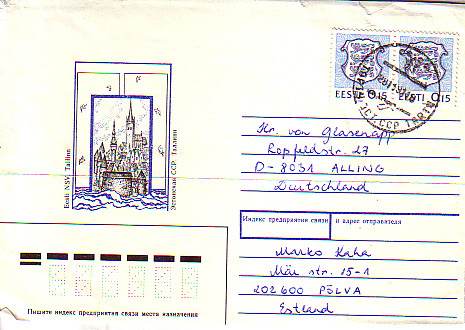 EESTI 0.15 EESTI 0.15
Eesti NSV. Tallinn
Эстонская ССР. Таллин
Hr. von Glasenapp
D-8031 ALLING
Deutschland
Индекс предприятия связи и адрес отправителя
Marko Kaha
Mäe str. 15-1
202600 PÕLVA
Estland
Пишите индекс предприятия связи места назначения